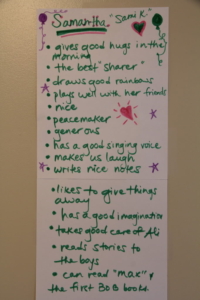 Samantha "Sami K"
• gives good hugs in the
morning
• the best "sharer"
• draws good rainbows
• plays well with her friends
• nice
• peacemaker
• generous
• has a good singing voice
• makes us laugh
• writes nice notes
• likes to give things
away
• has a good imagination
• takes good care of Ali
• reads stories to
the boys
• can read "max" &
the first BOB books